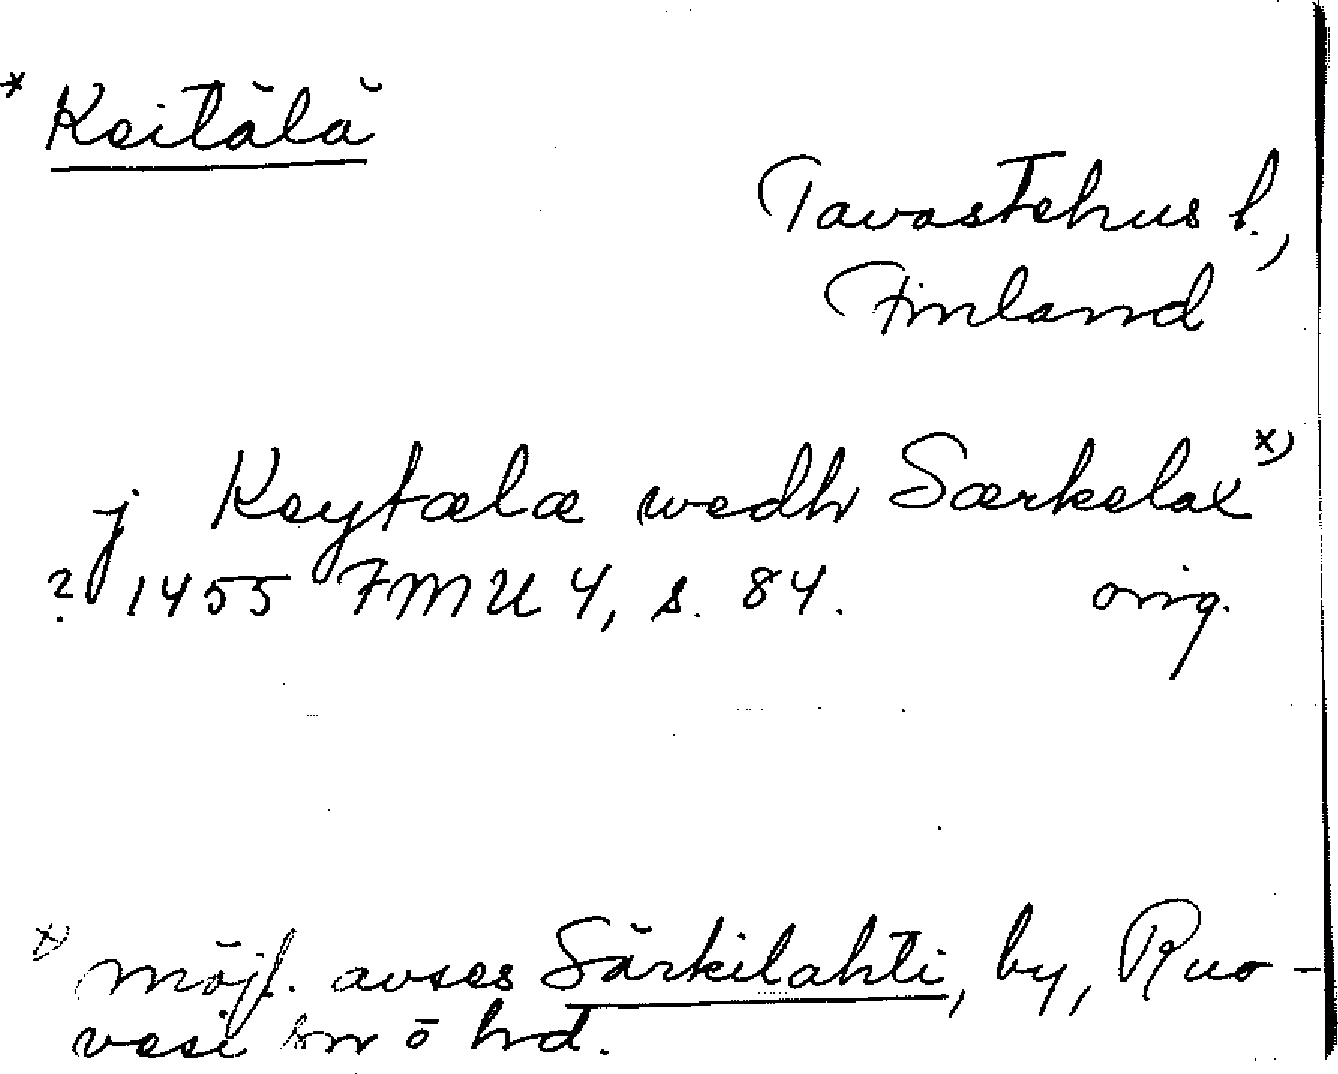 * Keitälä
Tavastehus l.,
Finland
j Keytælæ wedh Særkelax x)
? 1455 FMU 4, s. 84. orig.
x) möjl. avses Särkilahti, by, Ruo-
vesi sn o hd.